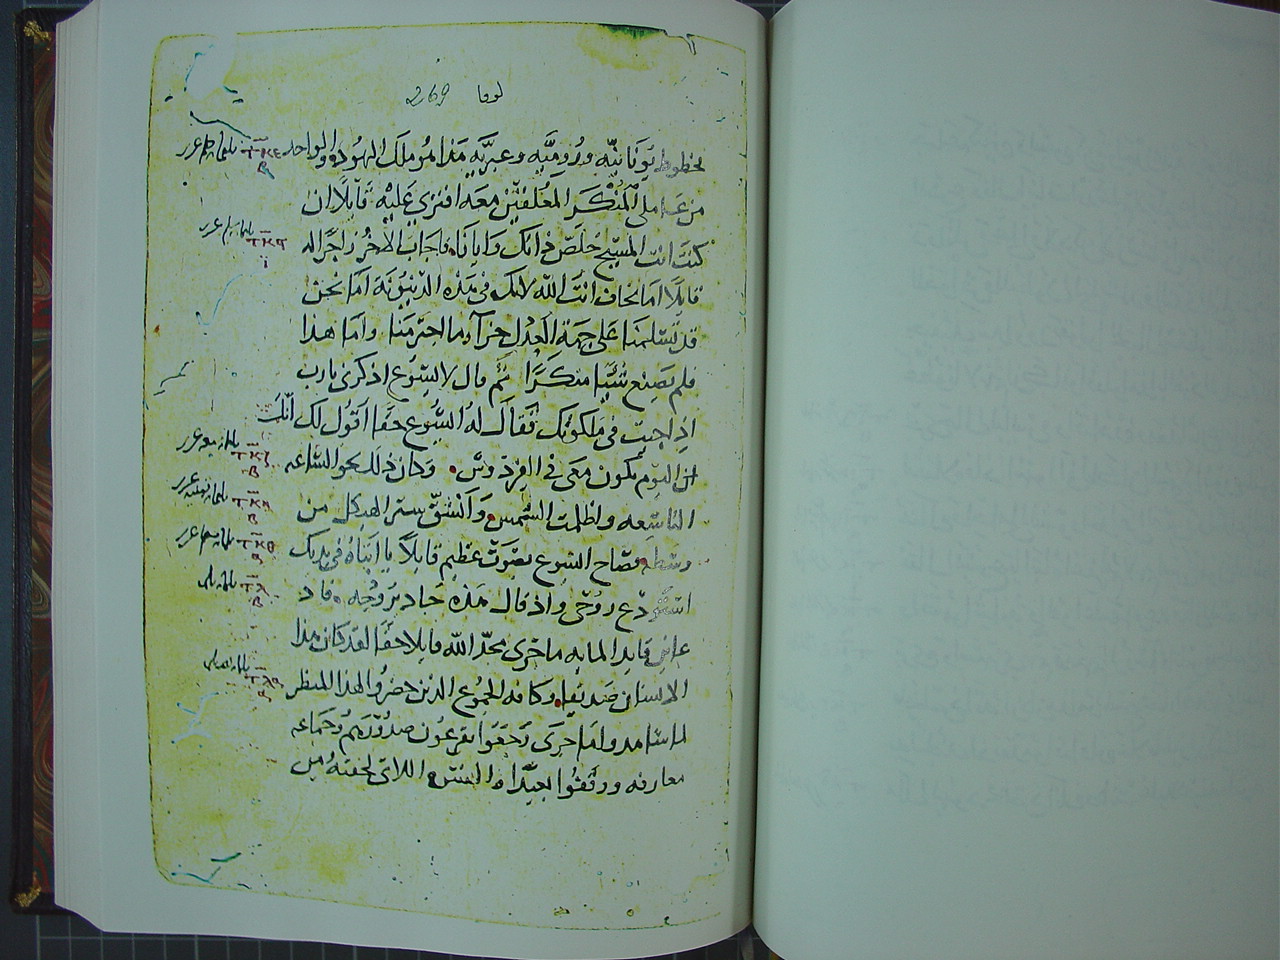 لوقا 269
بخطوط يُونَانيَّه ورُوميَّهٍ وعبريَّهٍ هَذا هُو ملَك اليَهُود والواحد
من عَاملى المُنْكَر المعُلقيْن معَه افترَي عَليْه قَايلاً ان
كنتَ انت المسيْح خلّصَ ذاتك وَايانَا فاجَاب الاخُر زاجرًا له
قايلًا امَا تخاف انتَ اللّه لانك فى هَذه الدينُونَه امَا نحن
قد تسَلمنَا عَلى جهَة العَدْل جزآ ما اجترمنا وامَا هذا
فلم يَصنع شيَّا منكَرًا ثم قال لايسُوع اذكرنى يارب
اذِا جيت فى مَلكوتك فَقالَ لهُ ايسُوع حقا اقول لك انّكَ
اليوم تكون معَى فى الفردوسْ وكان ذلك نحو السَّاعه
التاسِعه واظلمت الشمس وَانْشقّ ستر الهيكل من
وسَطه فصَاح ايسوع بصَوتْ عظيم قايلاً يا ابتَاهُ فى يديك
استَودْع روُحى واذ قال هَذه جَاد بُروُحِه فاذ
عاين قايد المايه ما جَرى مجدّ اللّه قايلا حقا لقد كان هذا
الانسان صَديقا وكافه الجموُع الذين حضرُوا لهذا المنظر
لما شاهدوا مَا جَرَى رَجَعوَا يقرعُون صدُورَهمُ وجماعه
معارفه ووَقفُوا بعيدًا والنسَوه اللاتى لحقنهُ من